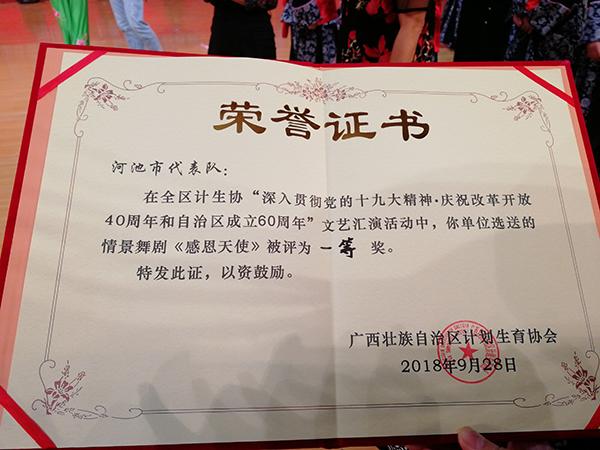 荣誉证书
河池市代表队：
在全区计生协“深入贯彻党的十九大精神·庆祝改革开放
40周年和自治区成立60周年”文艺汇演活动中，你单位选送的
情景舞剧《感恩天使》被评为 一等 奖。
特发此证，以资鼓励。
广西壮族自治区计划生育协会
2018年9月28日